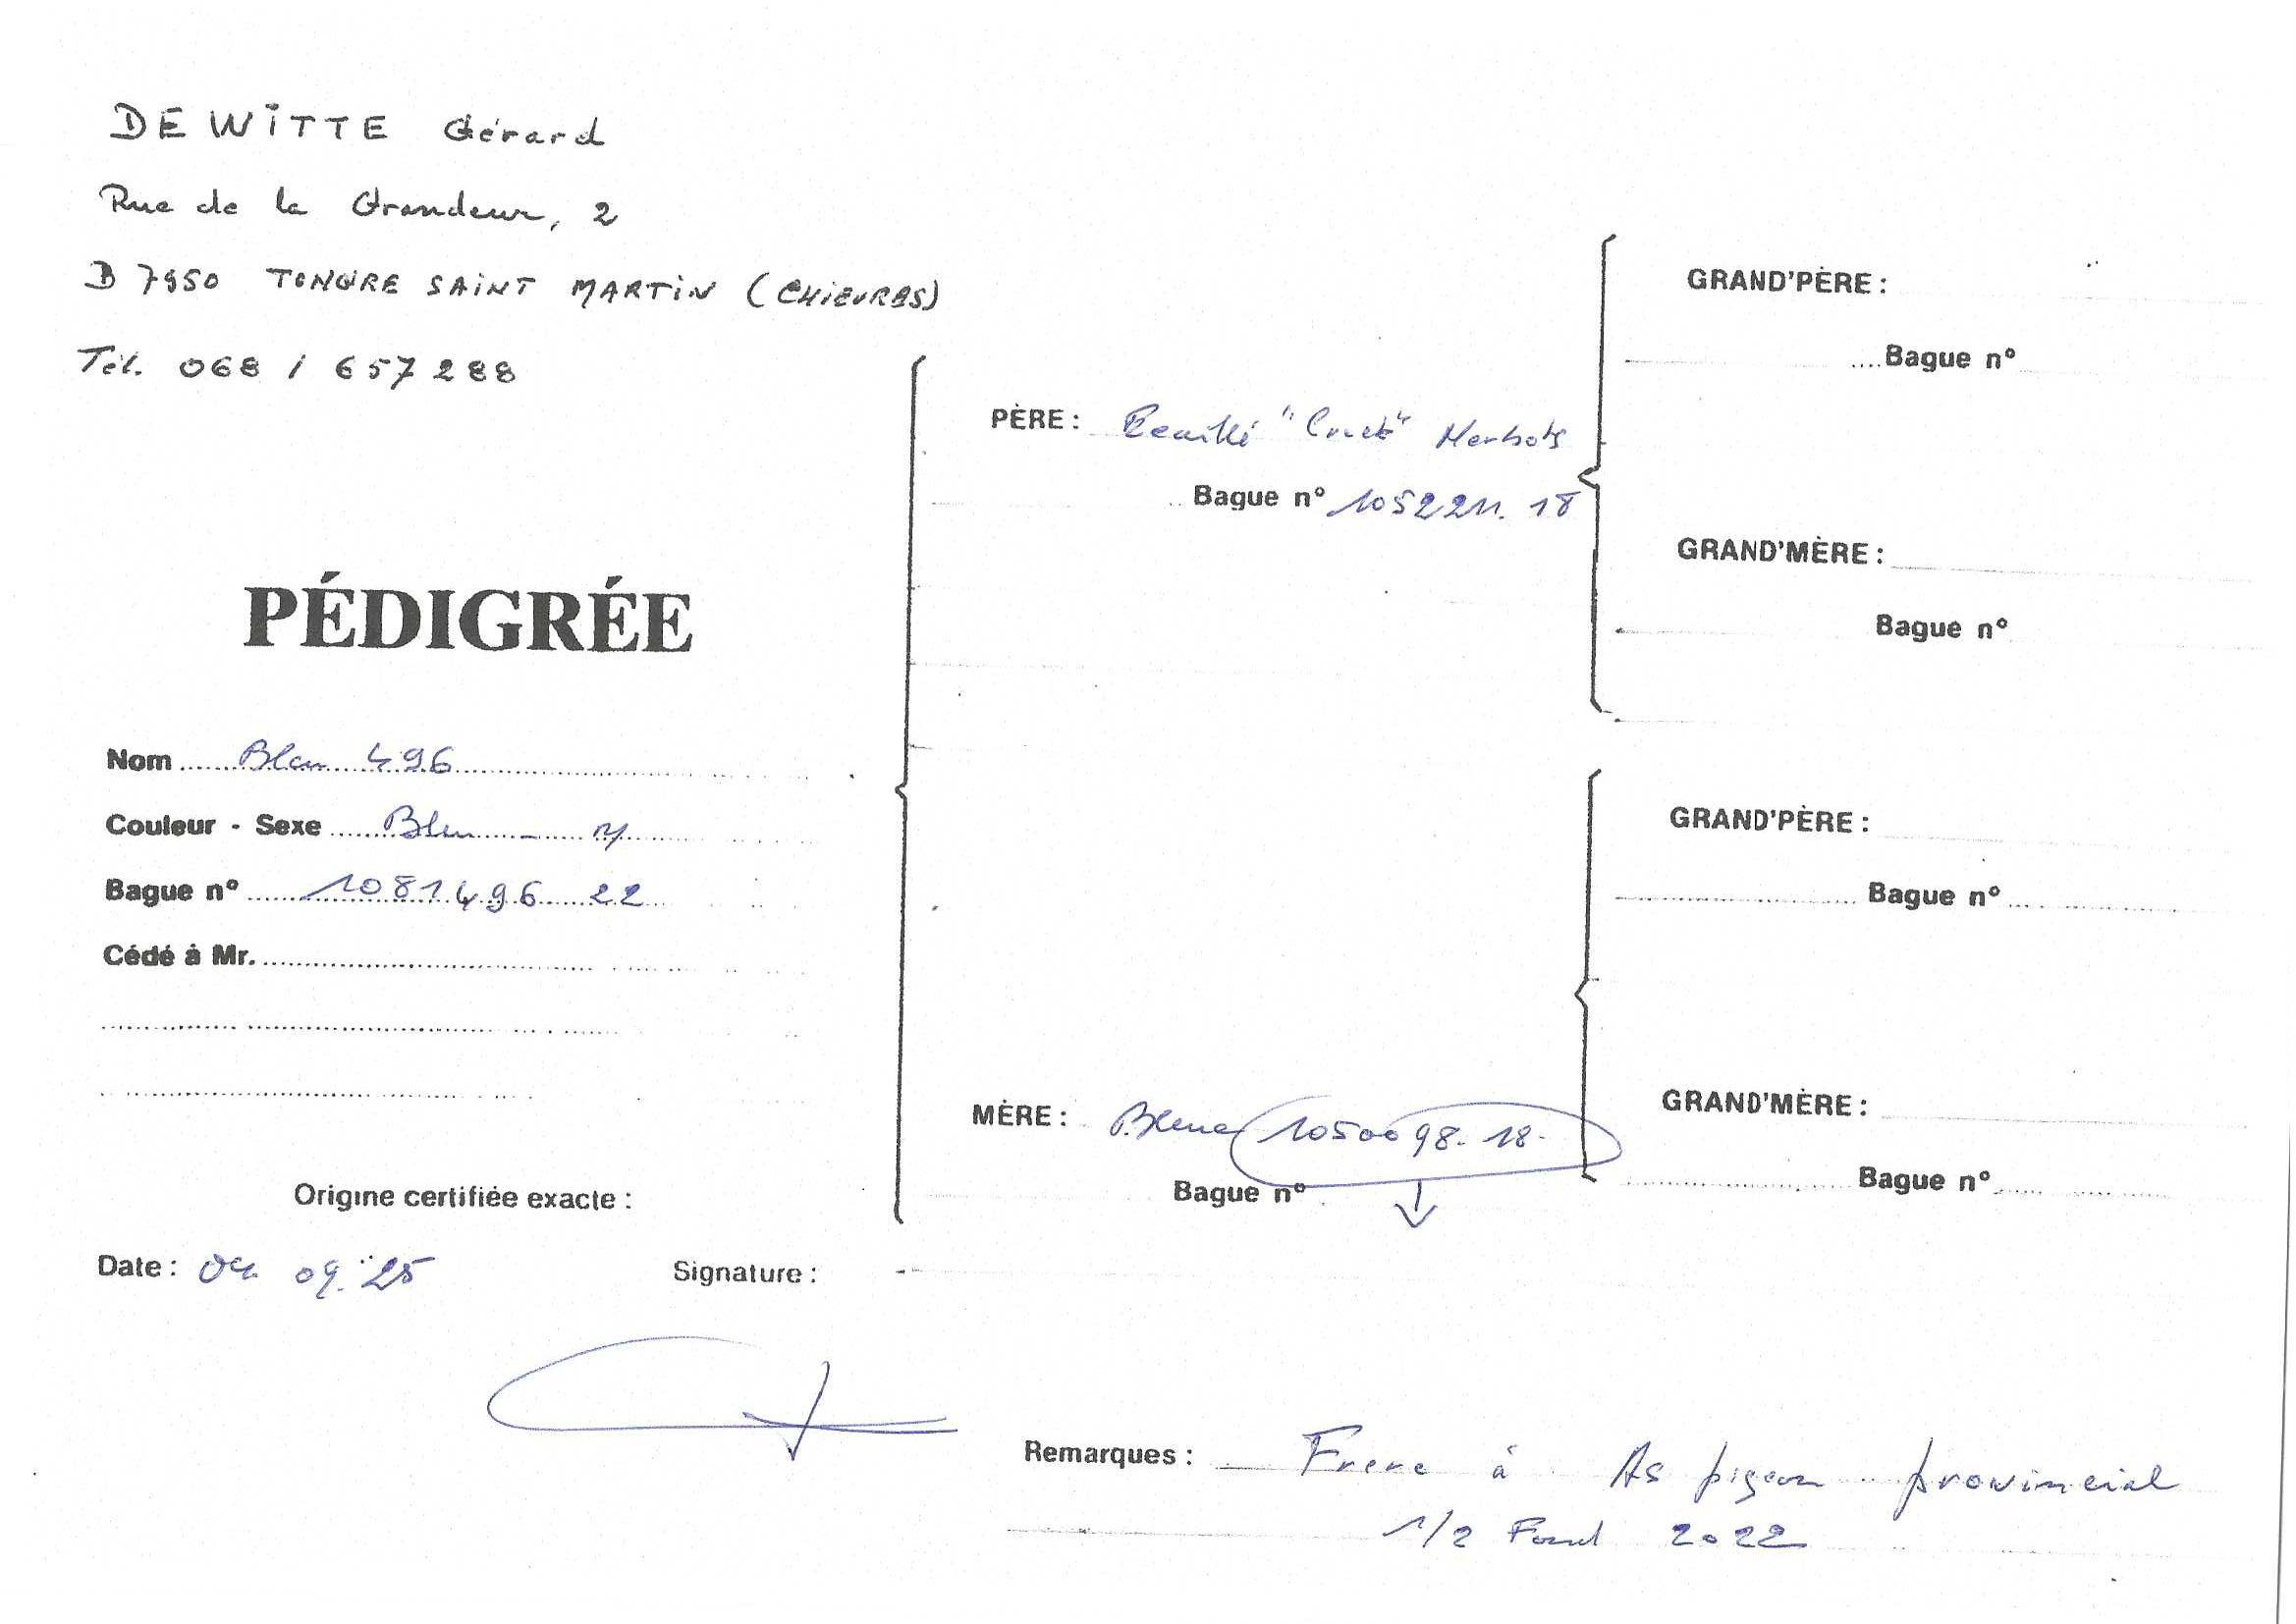 DEWITTE Gérard
Rue de la Grandeur, 2
B 7950 TONGRE SAINT MARTIN (CHIEVRES)
Tél. 068 / 657288
PÉDIGRÉE
Nom Bleu 496
Couleur - Sexe Bleu - M
Bague n° 1081496 22
Cédé à Mr.
Origine certifiée exacte :
Date : 09.25
Signature :
PÈRE : Ecaillé Herbots
Bague n° 1052211. 18
MÈRE : Bleue 1050098. 18.
Bague n°
GRAND'PÈRE :
Bague n°
GRAND'MÈRE :
Bague n°
GRAND'PÈRE :
Bague n°
GRAND'MÈRE :
Bague n°
Remarques : Frere à As pigeon provincial
1/2 Fond 2022